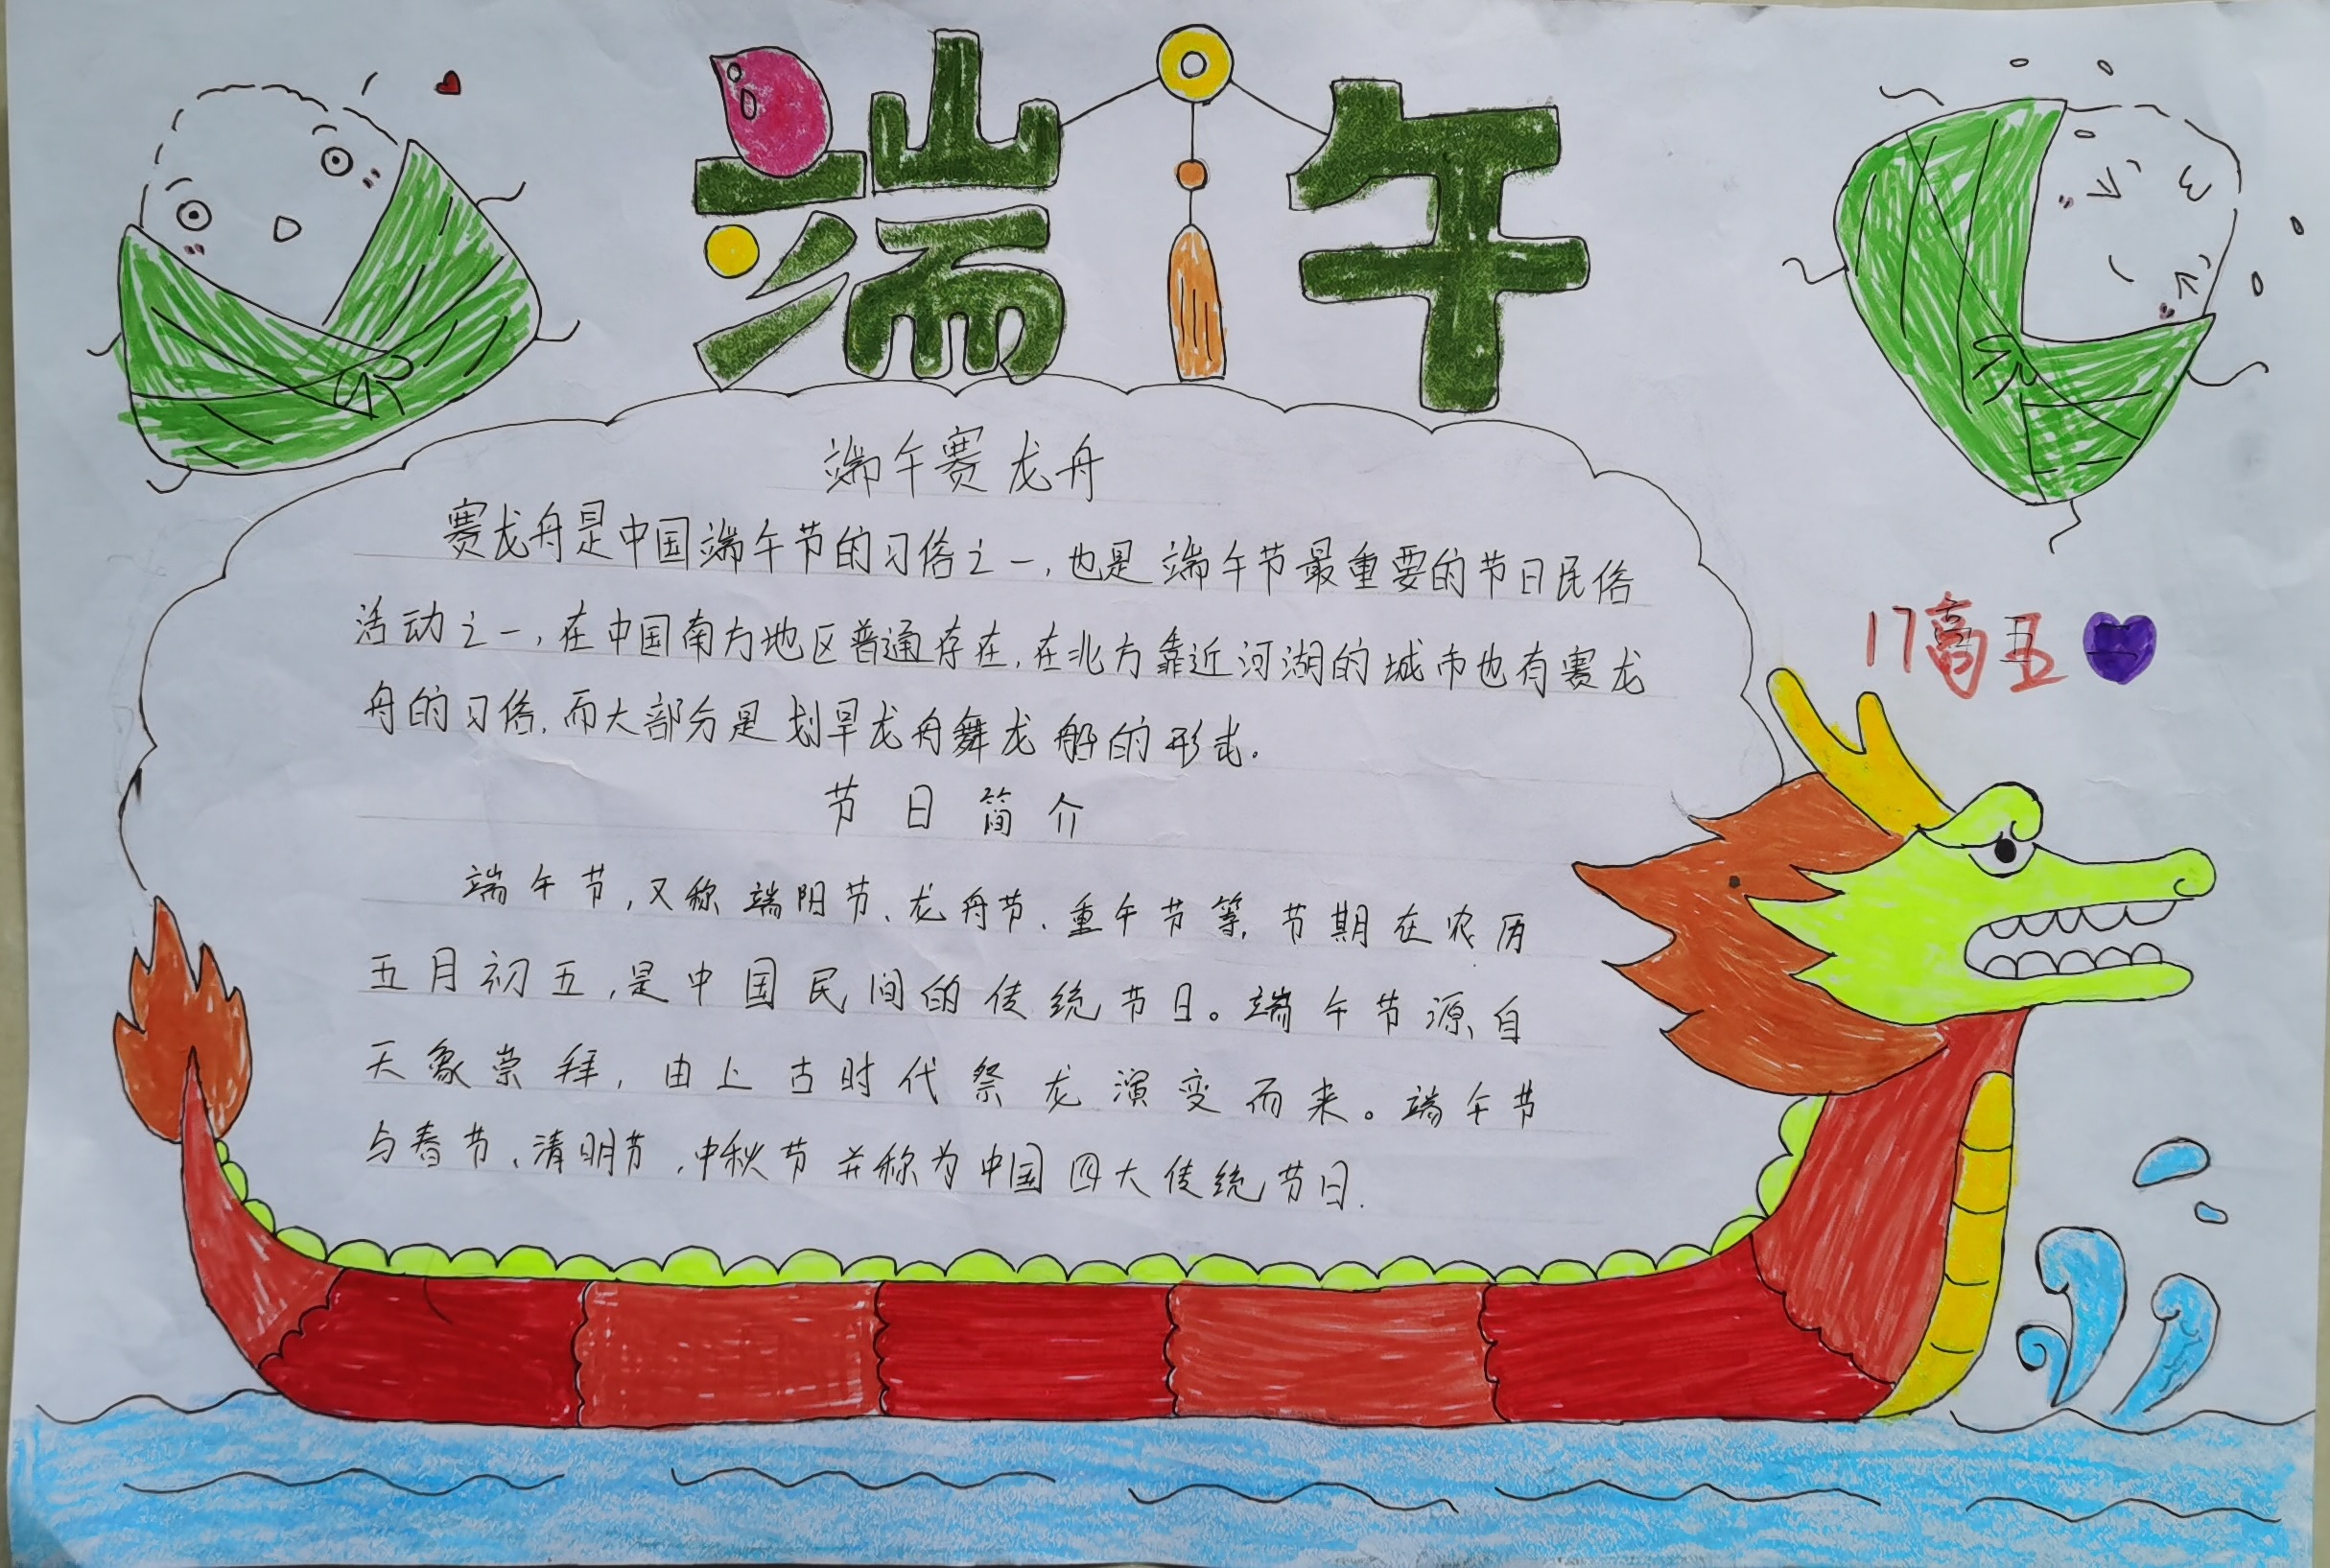 端午
端午赛龙舟
赛龙舟是中国端午节的习俗之一,也是端午节最重要的节日民俗
活动之一,在中国南方地区普通存在,在北方靠近河湖的城市也有赛龙
舟的习俗,而大部分是划旱龙舟舞龙船的形式.
17高五
节日简介
端午节,又称端阳节、龙舟节、重午节等,节期在农历
五月初五,是中国民间的传统节日。端午节源自
天象崇拜,由上古时代祭龙演变而来。端午节
与春节、清明节、中秋节并称为中国四大传统节日.